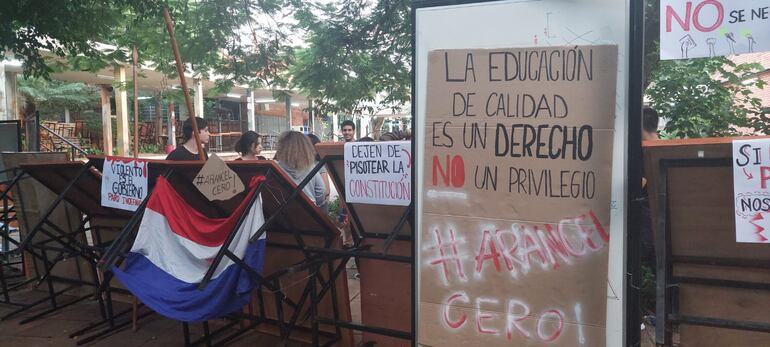 VIOLENTO
ES EL
GOBIERNO
PARO INDEFINIDO
#ARANCEL
CERO!
DEJEN DE
PISOTEAR LA
CONSTITUCIÓN
LA EDUCACIÓN
DE CALIDAD
ES UN DERECHO
NO UN PRIVILEGIO
#ARANCEL
CERO!
NO SE NE
SI
NOS